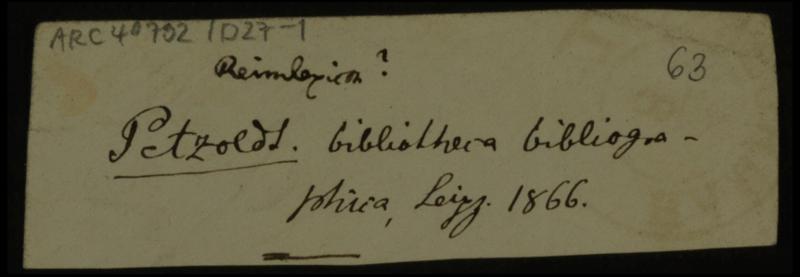 ARC 4° 792 / D27-1
Reimlexicon?
63
Petzoldt. bibliotheca bibliogra-
phica, Leipz. 1866.